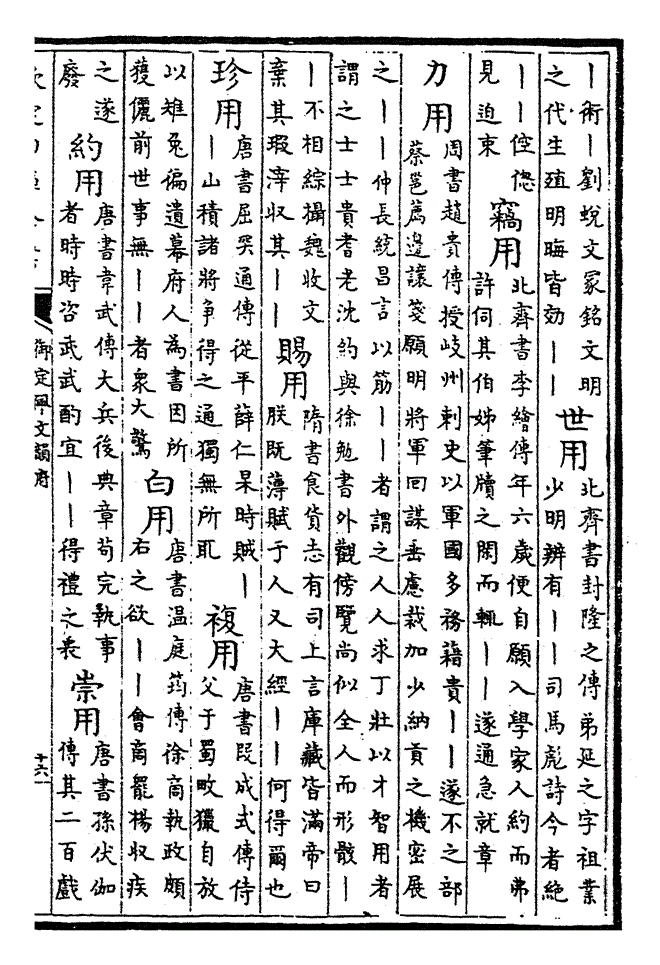 ｜術｜劉蛻文冢銘文明
之代生殖明晦皆効｜｜
世用
北齊書封隆之傳弟延之字祖業
少明辨有｜｜司馬彪詩今者絕
｜｜倥傯
見迫束
竊用
北齊書李繪傳年六歲便自願入學家人約而弗
許伺其伯姊筆牘之閒而輒｜｜遂通急就章
力用
周書趙貴傳授岐州刺史以軍國多務藉貴｜｜遂不之部
蔡邕薦邊讓箋願明將軍回謀垂慮裁加少納貢之機密展
之｜｜仲長統昌言以筋｜｜者謂之人人求丁壯以才智用者
謂之士士貴耆老沈約與徐勉書外觀傍覽尚似全人而形骸｜
｜不相綜攝魏收文
棄其瑕滓收其｜｜
賜用
隋書食貨志有司上言庫藏皆滿帝曰
朕既薄賦于人又大經｜｜何得爾也
珍用
唐書屈突通傳從平薛仁杲時賊｜
｜山積諸將爭得之通獨無所取
複用
唐書段成式傳侍
父于蜀畋獵自放
以雉兔偏遺幕府人為書因所
獲儷前世事無｜｜者衆大驚
白用
唐書温庭筠傳徐商執政頗
右之欲｜｜會商罷楊收疾
之遂
廢
約用
唐書韋武傳大兵後典章苟完執事
者時時咨武武酌宜｜｜得禮之衷
崇用
唐書孫伏伽
傳其二百戲
御定佩文韻府
十六